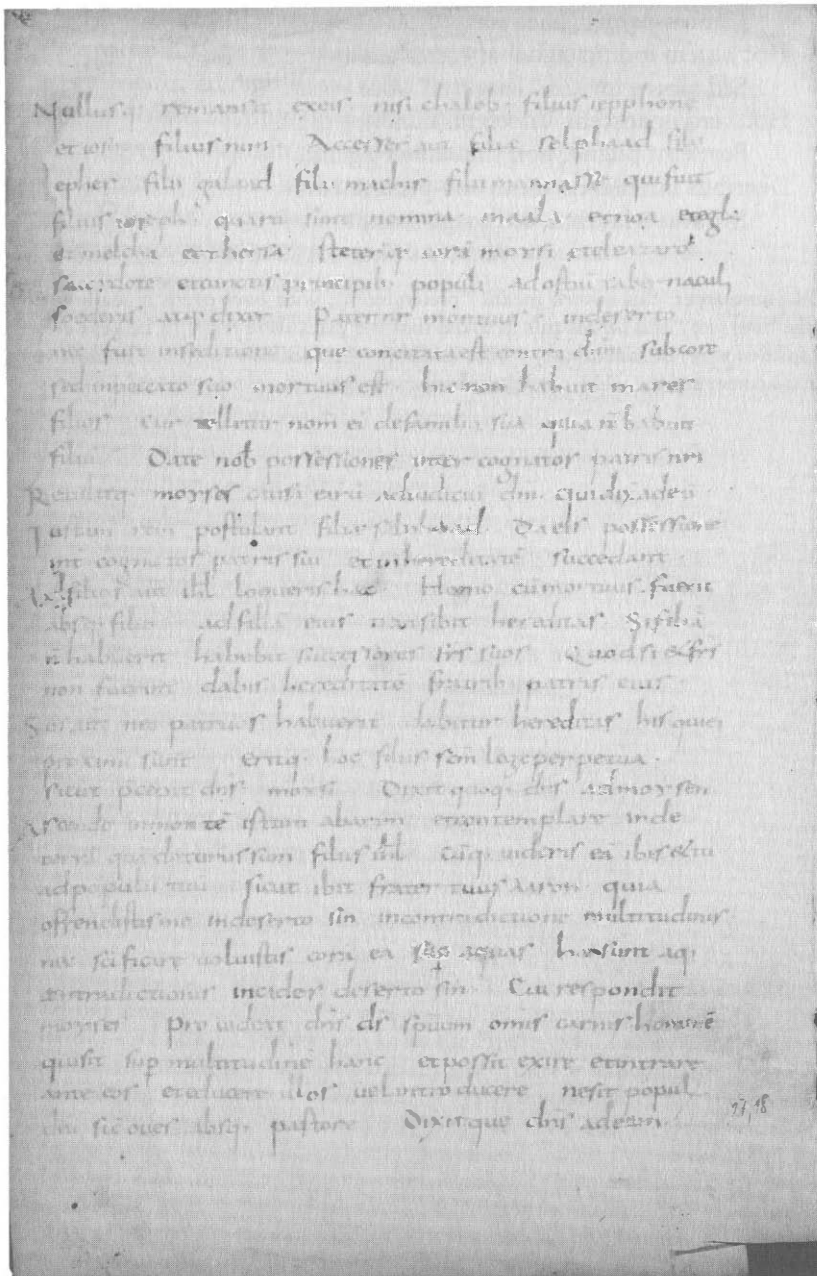 Nullusq; remansit exeis nisi chaleb filius iepphone
et iosue filius nun Accesser aut filiae selphaad filii
epher filii galaad filii machir filii manasse quifuit
filius ioseph quarū sunt nomina maala etnoa etegla
et melcha ettherſa steterq; corā moysi eteleazaro
sacerdote etcunctis principib; populi adostiū tabernaculi
foederis atq; dixer Pater nr mortuus indeserto
nec fuit inseditione que concitataest contra dnm subcore
sed inpeccato suo mortuus est hic non habuit mares
filios cur tolletur nom̄ ei defamilia sua quia n̄ habuit
filiū Date nob possessiones inter cognatos patris nri
Rettulitq; moyses causā earū adiudiciū dni quidix adeū
Iustam rem postulant filiae salphaad Da eis possessionē
int cognatos patris sui et inhereditatē succedant
Adfilios aut̄ isrl loqueris hec Homo cūmortuus fuerit
absq; filio adfiliā eius transibit hereditas Sifiliā
n̄ habuerit habebit successores frs suos Quodsi & frs
non fuerint dabis hereditatē fratrib; patris eius
Sinaut nec patruos habuerit dabitur hereditas his quiei
proximi sunt eritq; hoc filiis scm̄ lege perpetua
sicut p̄cepit dns moysi Dixit quoq; dns admoysen
Ascende inmontē istum abarim etcontemplare inde
terrā quādaturussum filiis isrl Cūq; uideris eā ibis & tu
adpopulū tuū sicut ibit frater tuus aaron quia
offendistisme indeserto sin incontradictione multitudinis
nec scificare uoluistis corā ea sup aquas haesunt aq;
contradictionis incades deserto sin Cui respondit
moyses Prouideat dns ds spūum omnis carnis hominē
quisit sup multitudinē hanc etpossit exire etintrare
ante eos eteducere illos uelintroducere nesit popul
dni sic oues absq; pastore Dixitque dns adeum
27,18